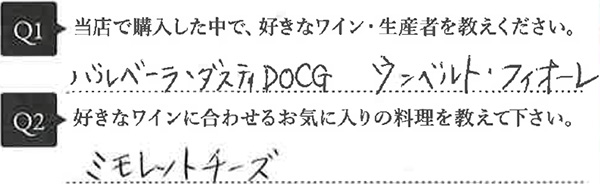 Q1 当店で購入した中で、好きなワイン・生産者を教えください。
バルベーラ・ダスティDOCG ウンベルト・フィオーレ
Q2 好きなワインに合わせるお気に入りの料理を教えて下さい。
ミモレットチーズ